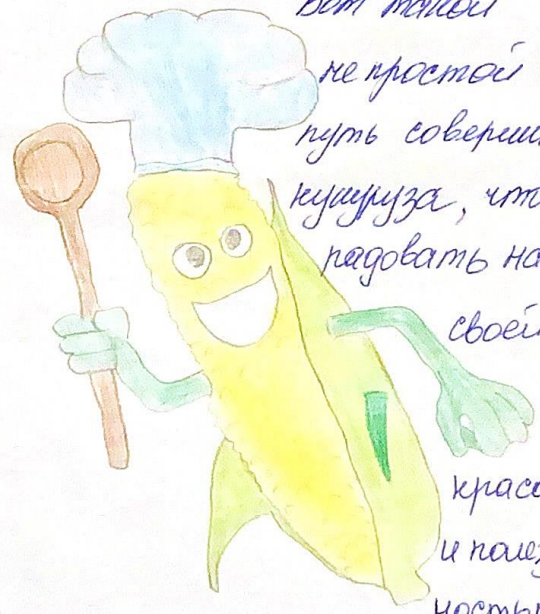 Вот такой
не простой
путь соверши
кукуруза, что
радовать на
своей
красо
и полез
ностью